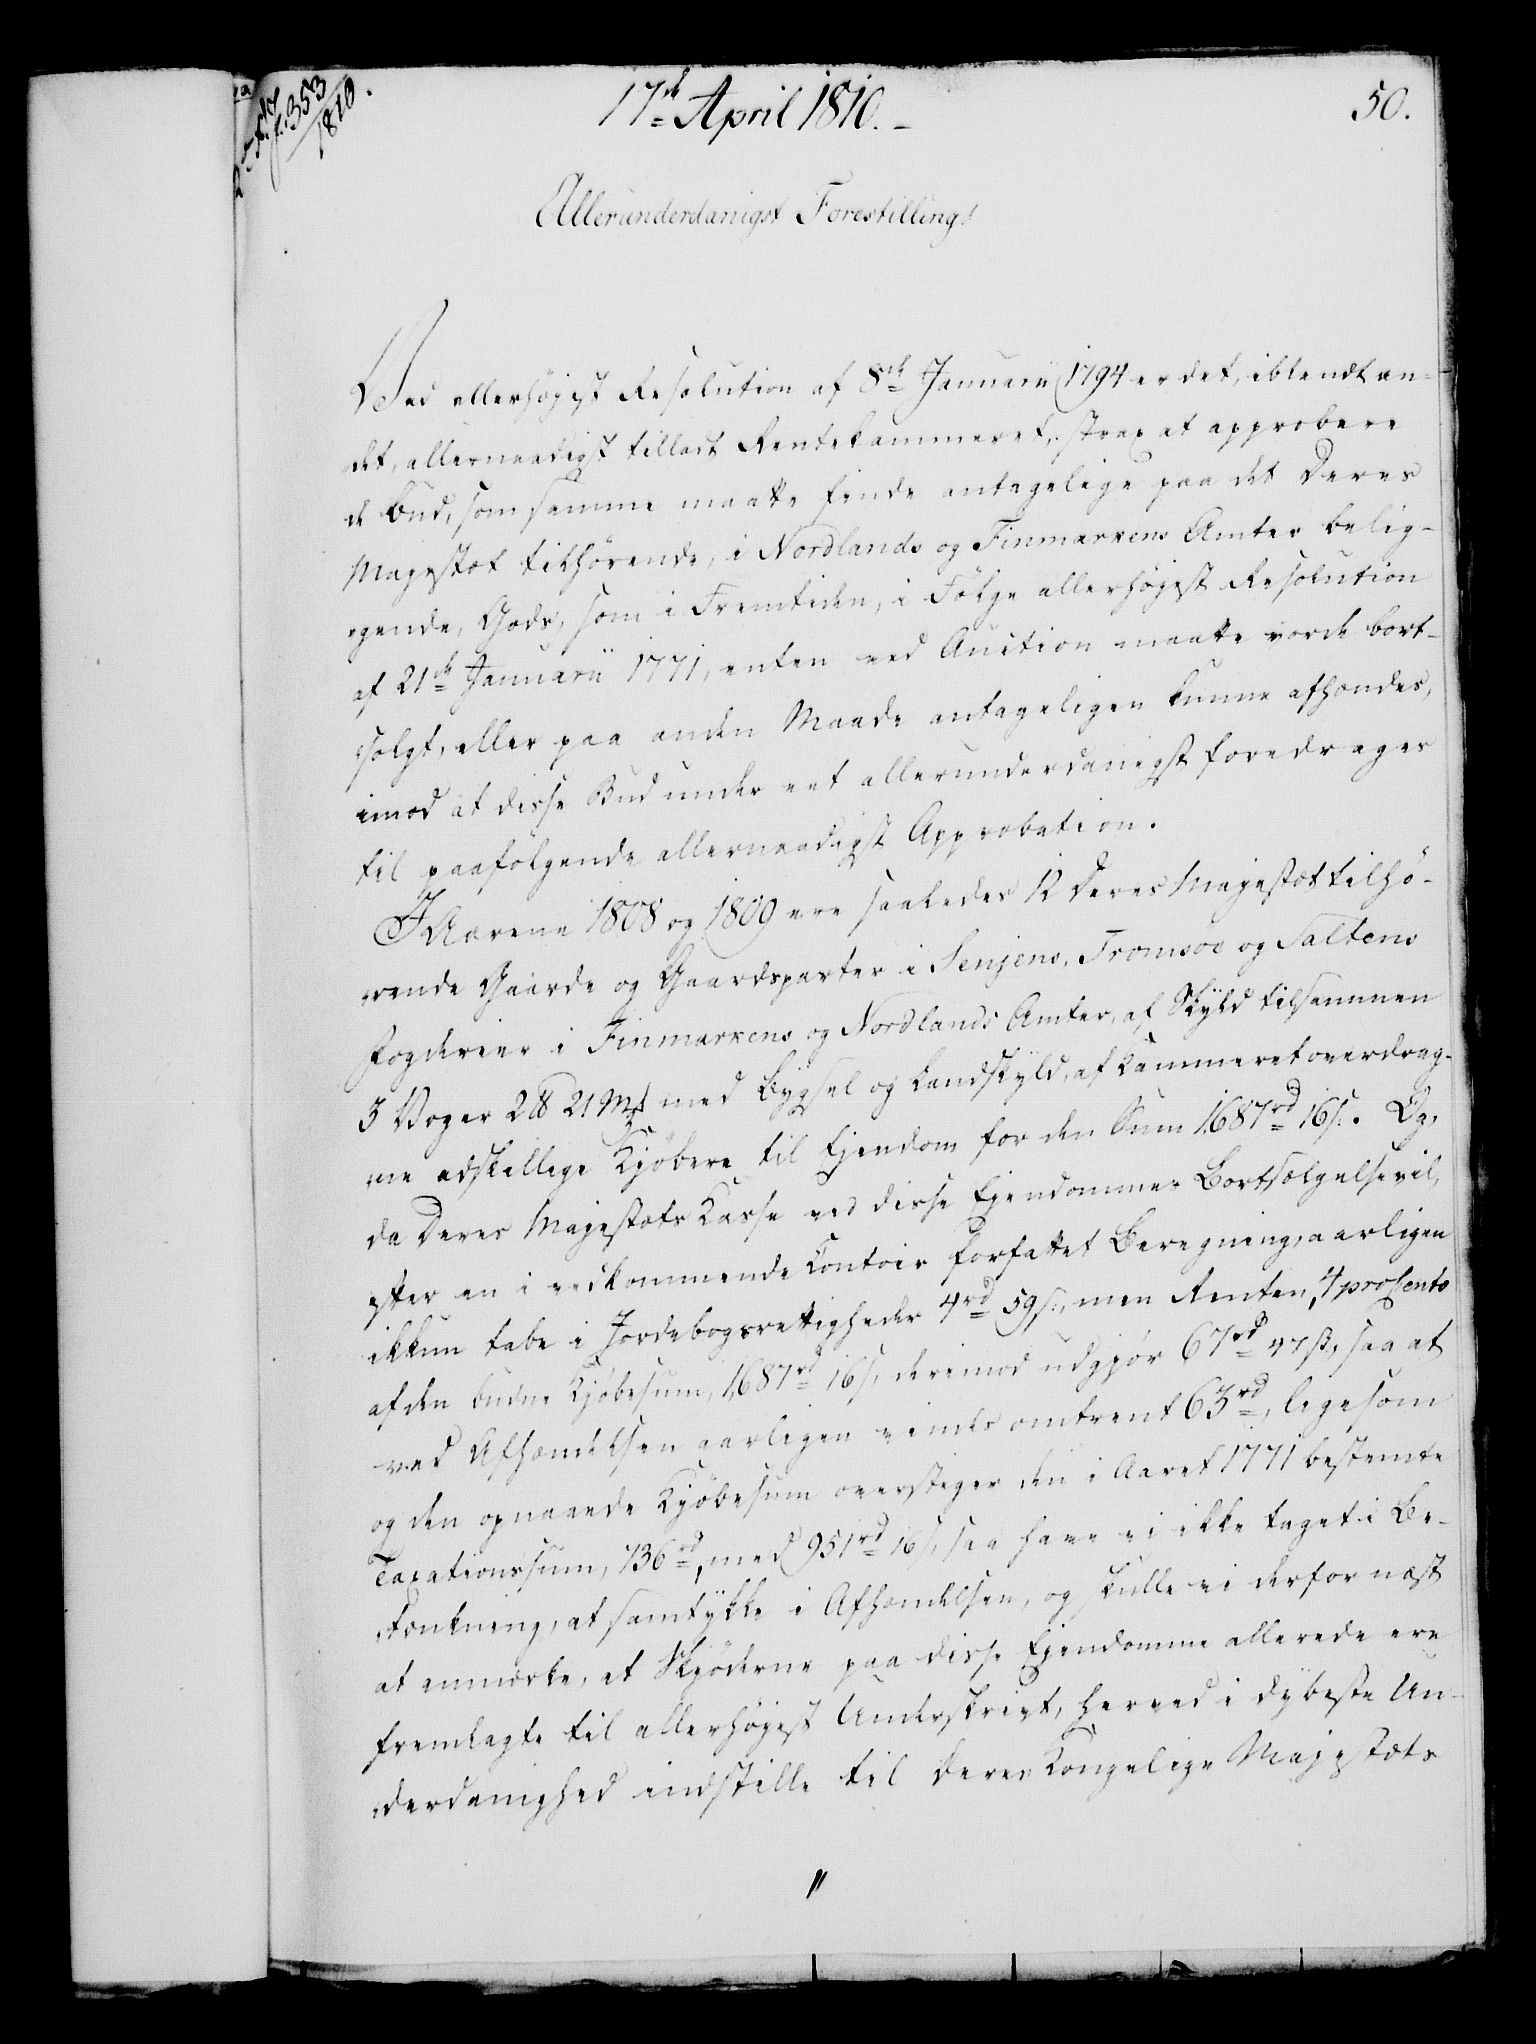 f. 353
1810.
17de April 1810.
50.
Allerunderdanigst Forestilling!
Ved allerhøjest Resolution af 8de Januarii 1794 er det, iblandt an-
det, allernaadigst tilladt Rentekammeret, strax at approbere
de Bud, som samme maatte finde antagelige paa det Deres
Majestæt tilhørende, i Nordlands og Finmarkens Amter belig-
gende, Gods, som i Fremtiden, i Følge allerhøjest Resolution
af 21de Januarii 1771, enten ved Auction maatte vorde bort-
solgt, eller paa anden Maade antageligen kunne afhændes,
imod at disse Bud under eet allerunderdanigst foredrages
til paafølgende allernaadigst Approbation.
I Aarene 1808 og 1809 ere saaledes 12 Deres Majestæt tilhø-
rende Gaarde og Gaardsparter i Senjens, Tromsøe og Saltens
Fogderier i Finmarkens og Nordlands Amter, af Skyld tilsammen
3 Voger 2 ℔ 21 Mk med Bygsel og Landskyld, af Kammeret overdrag-
ne adskillige Kjøbere til Ejendom for den Sum 1687 rd 16 s. Og,
da Deres Majestæts Kasse ved disse Ejendommes Bortsælgelse vil,
efter en i vedkommende Contoir forfattet Beregning, aarligen
ikkun tabe i Jordebogsrettigheder 4 rd 59 s., men Renten, 4 procento
af den budne Kjøbesum, 1687 rd 16 s, derimod udgjør 67 rd 47 ß, saa at
ved Afhændelsen aarligen vindes omtrent 63 rd, ligesom
og den opnaaede Kjøbesum overstiger den i Aaret 1771 bestemte
Taxationssum, 736 rd, med 951 rd 16 s, saa have vi ikke taget i Be-
tænkning, at samtykke i Afhændelsen, og skulle vi derfor næst
at anmærke, at Skjøderne paa disse Ejendomme allerede ere
fremlagte til allerhøjest Underskrivt, herved i dybeste Un-
derdanighed indstille til Deres Kongelige Majestæts
"